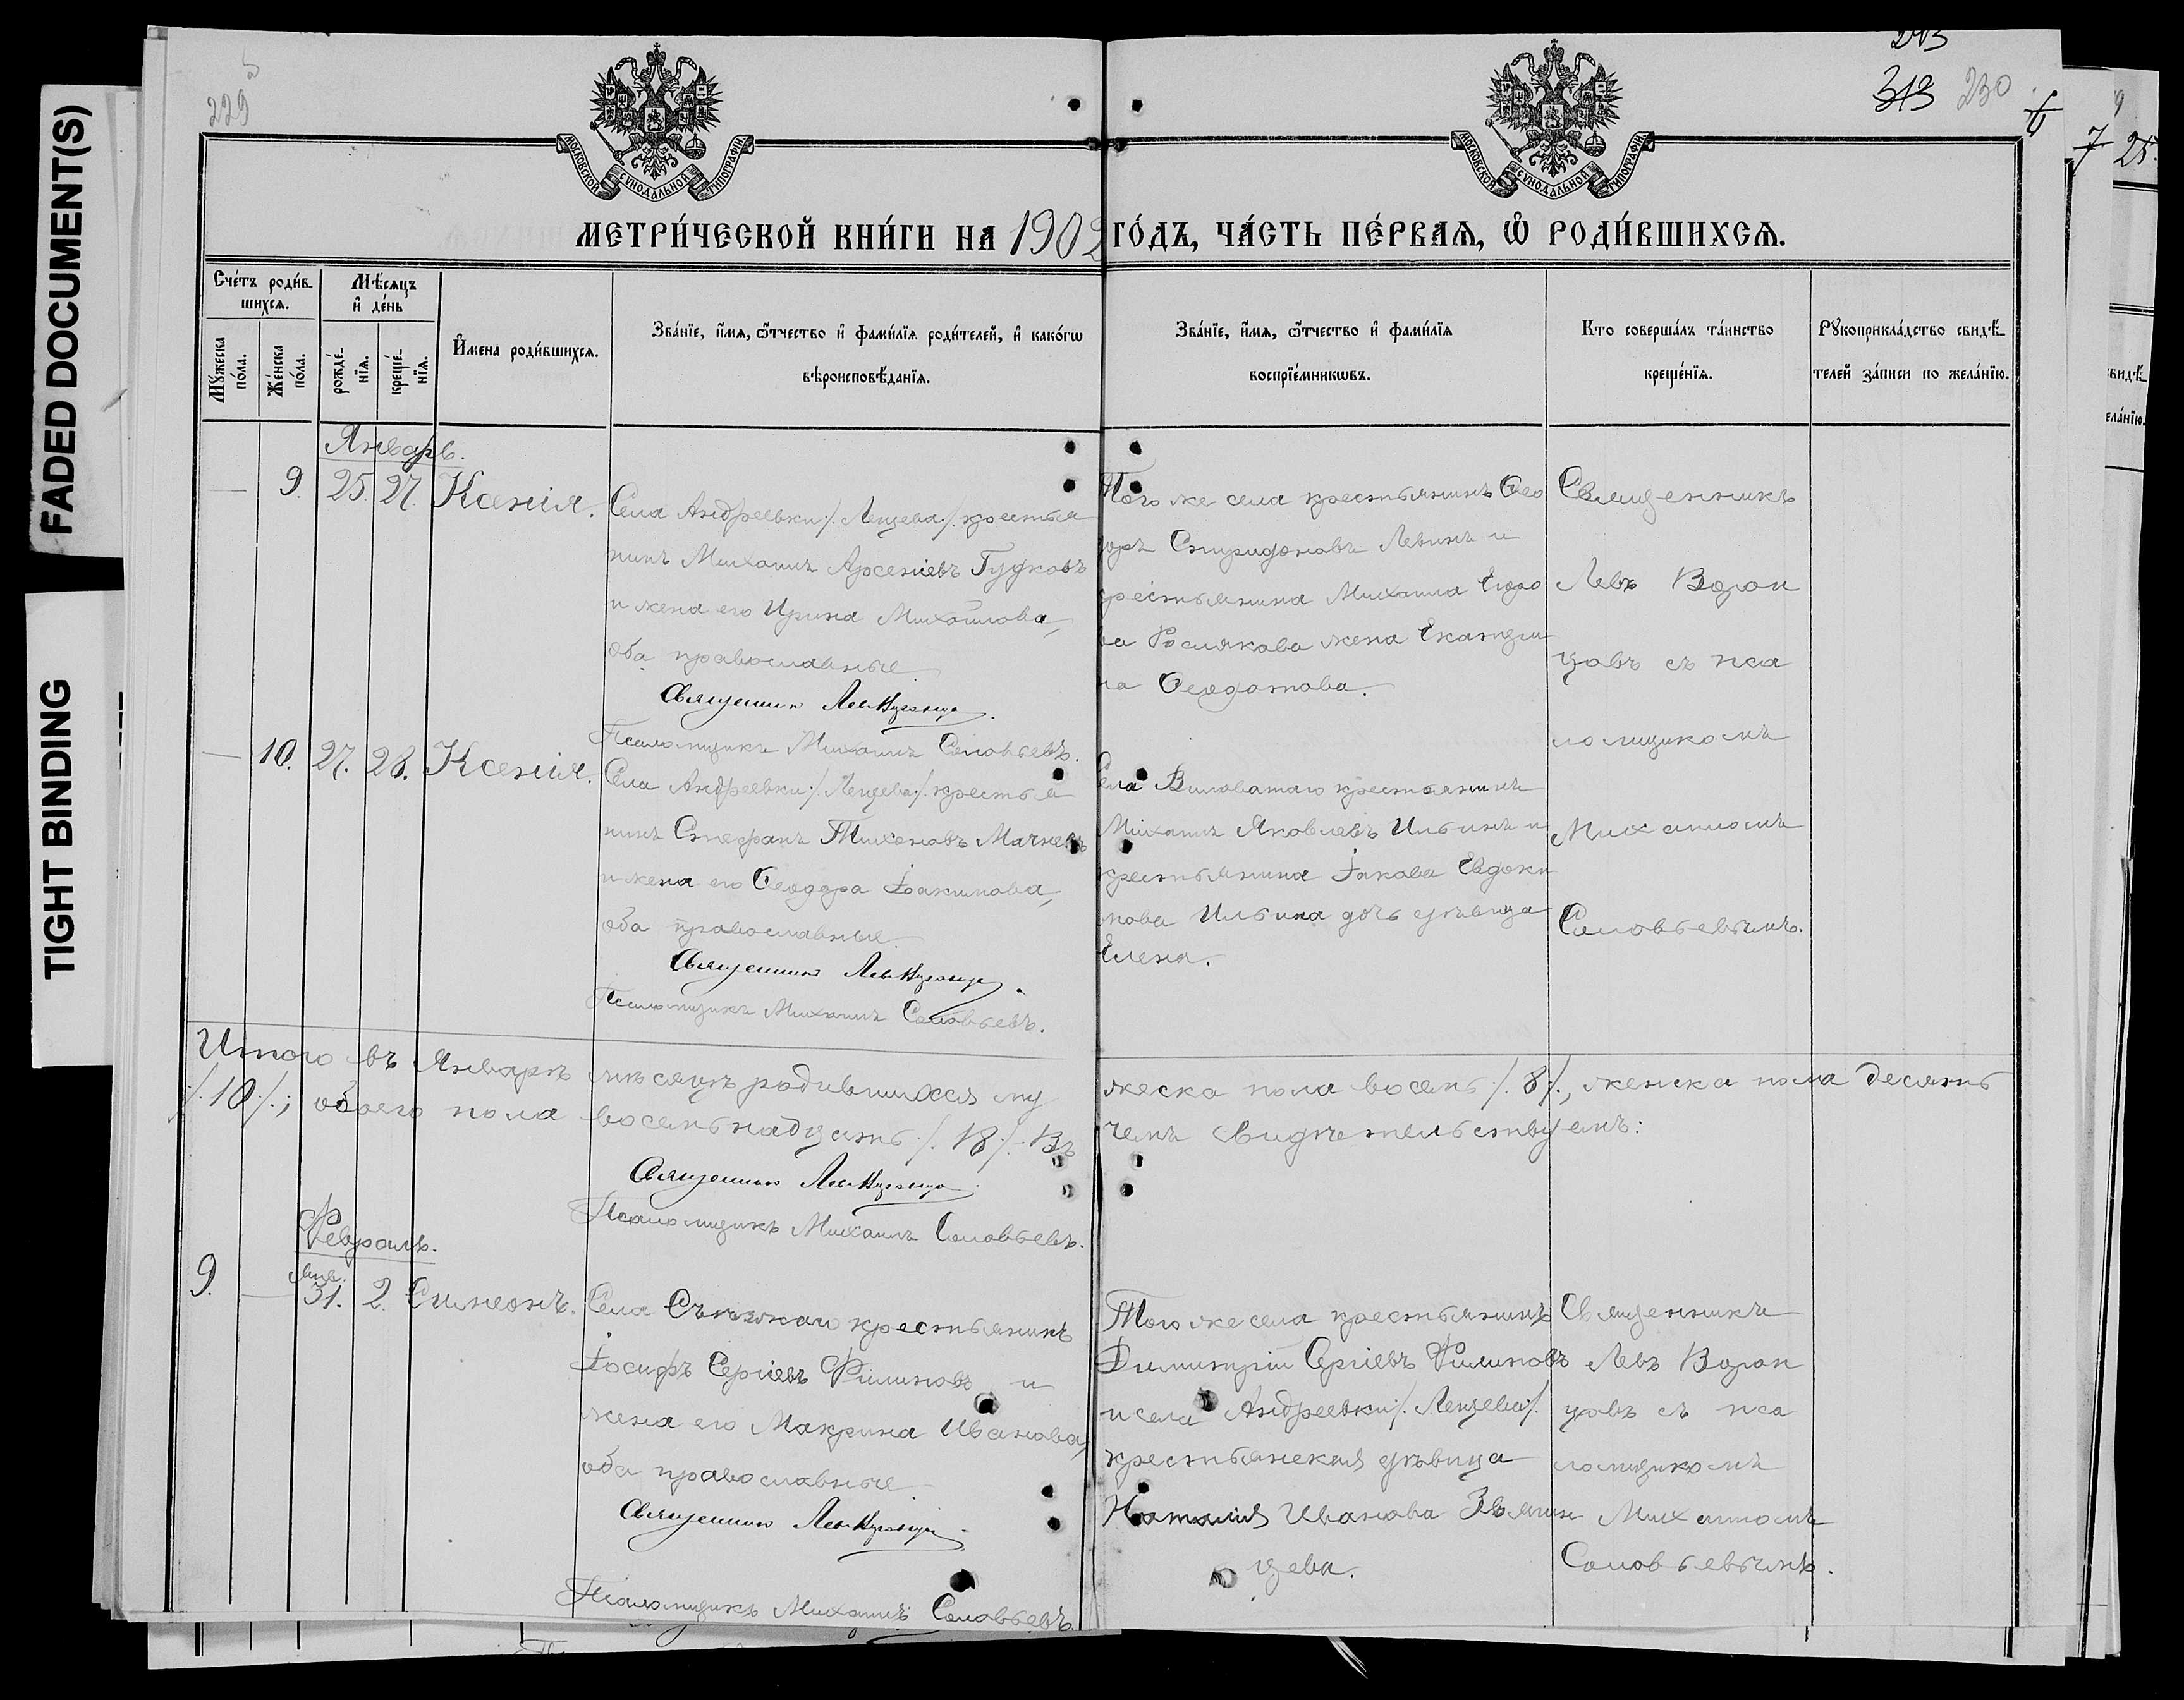 FADED DOCUMENT(S)
TIGHT BINDING
229
213
313 230
6
7 25
МОСКОВСКОЙ СѴНОДАЛЬНОЙ ТИПОГРАФІИ
МОСКОВСКОЙ СѴНОДАЛЬНОЙ ТИПОГРАФІИ
МЕТРИ́ЧЕСКОЙ КНИ́ГИ НА 1902 ГО́ДЪ, ЧА́СТЬ ПЕ́РВАѦ, Ѡ҆ РОДИ́ВШИХСѦ.
Сче́тъ роди́в-
шихсѧ.
Мѣ́сяцъ
и҆ де́нь
Мꙋ́жеска по́ла.
Же́нска по́ла.
рожде́-нїѧ.
креще́-нїѧ.
И҆мена роди́вшихсѧ.
Зва́нїе, и҆́мѧ, ѻ҆́тчество и҆ фамѝлїѧ роди́телей, и҆ како́гѡ
вѣроисповѣ́данїѧ.
Зва́нїе, и҆́мѧ, ѻ҆́тчество и҆ фамѝлїѧ
воспрїе́мникѡвъ.
Кто соверша́лъ та́инство
креще́нїѧ.
Рꙋкоприкла́дство свидѣ́-
телей за́писи по жела́нїю.
Январь.
— 9. 25. 27. Ксенія.
Села Андреевки /. Лещева /. крестья
нинъ Михаилъ Арсеніевъ Гудковъ
и жена его Ирина Михайлова,
оба православные.
Священникъ Левъ Воронцовъ
Псаломщикъ Михаилъ Соловьевъ.
Того же села крестьянинъ Ѳео
доръ Спиридоновъ Левинъ и
крестьянина Михаила Егоро
ва Рослякова жена Екатери
на Ѳеодотова.
Священникъ
Левъ Ворон
цовъ съ пса
ломщикомъ
Михаиломъ
Соловьевымъ.
— 10. 27. 28. Ксенія.
Села Андреевки /. Лещева /. крестья
нинъ Стефанъ Тихоновъ Мачневъ
и жена его Ѳеодора Іоакимова,
оба православные.
Священникъ Левъ Воронцовъ
Псаломщикъ Михаилъ Соловьевъ.
Села Виловатаго крестьянинъ
Михаилъ Яковлевъ Ильинъ и
крестьянина Іакова Евдоки
мова Ильина дочь дѣвица
Елена.
Итого въ Январѣ мѣсяцѣ родившихся му жеска пола восемь /. 8 /., женска пола десять
/. 10 /.; обоего пола восемьнадцать /. 18 /. Въ чемъ свидѣтельствуемъ:
Священникъ Левъ Воронцовъ
Псаломщикъ Михаилъ Соловьевъ.
Февраль.
Янв.
9. — 31. 2. Симеонъ.
Села Съѣзжаго крестьянинъ
Іосифъ Сергіевъ Филиновъ и
жена его Макрина Иванова,
оба православные.
Священникъ Левъ Воронцовъ
Псаломщикъ Михаилъ Соловьевъ
Того же села крестьянинъ
Димитрій Сергіевъ Филиновъ
и села Андреевки /. Лещева /.
крестьянская дѣвица
Наталія Иванова Звягин
цева.
Священникъ
Левъ Ворон
цовъ съ пса
ломщикомъ
Михаиломъ
Соловьевымъ.